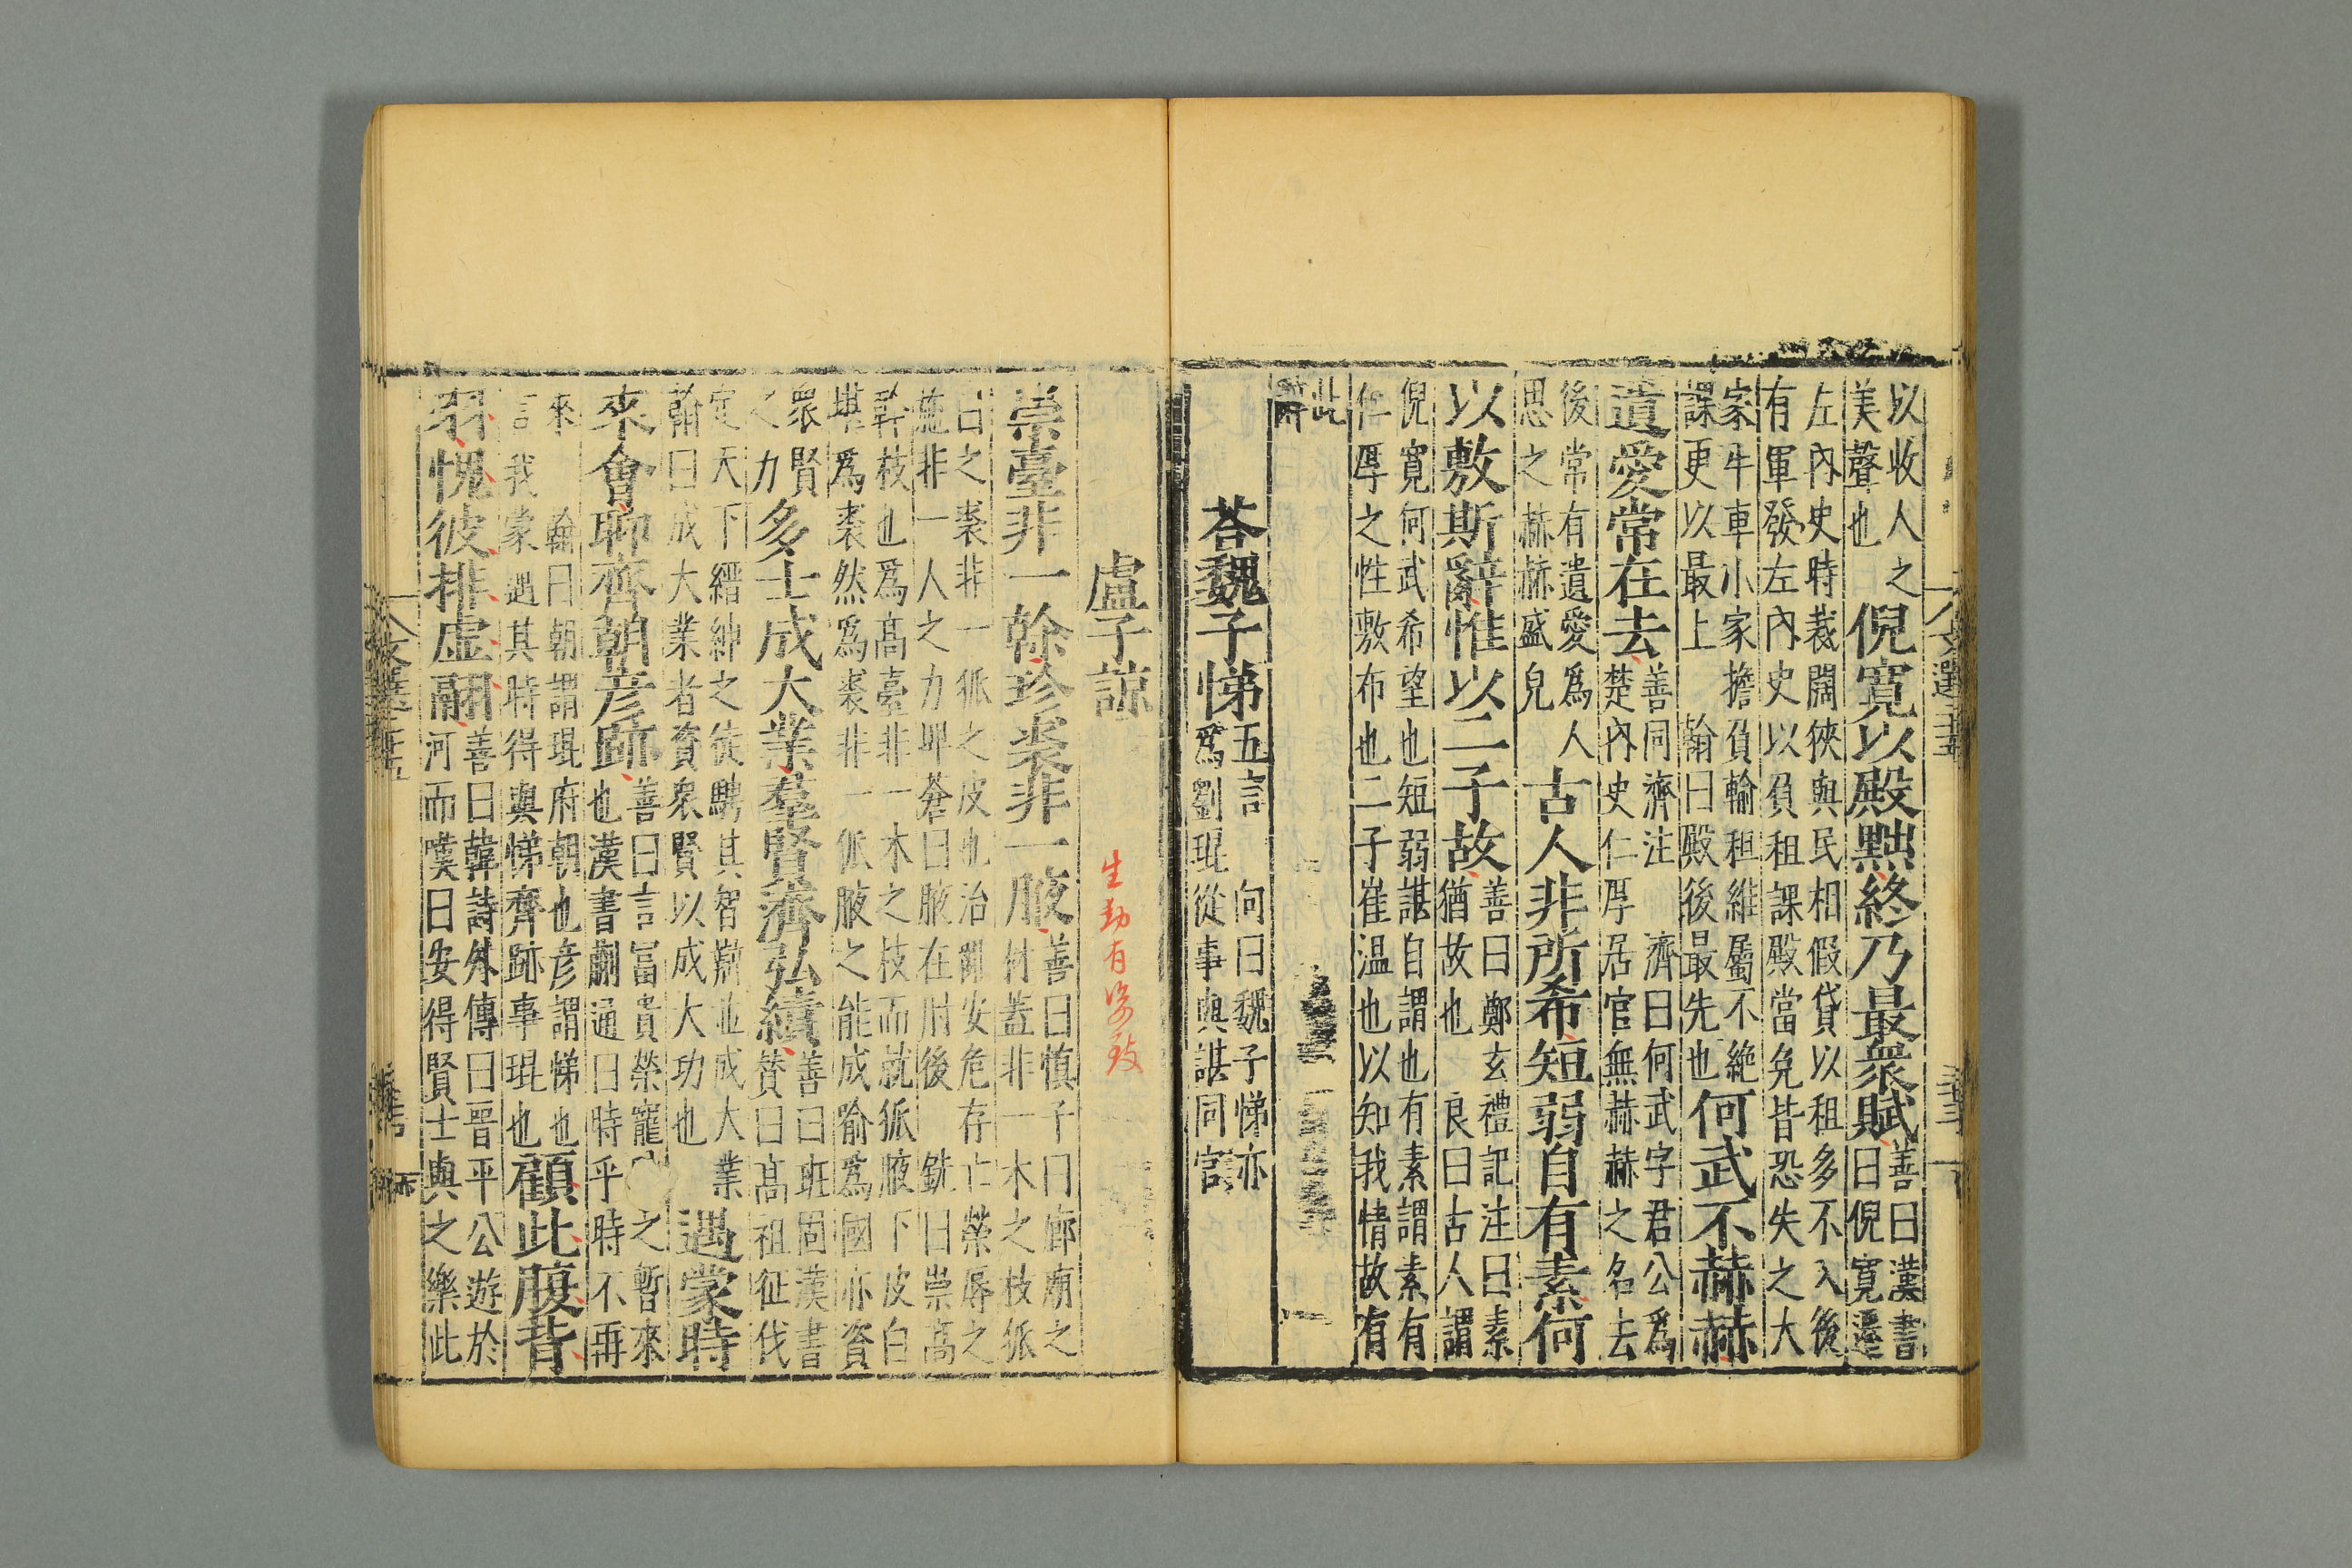 以收人之
美聲也
倪寬以殿黜終乃最衆賦
善曰漢書
曰倪寬遷
左內史時裁闊狹與民相假貸以租多不入後
有軍發左內史以負租課殿當免皆恐失之大
家牛車小家擔負輸租繦屬不絶
課更以最上 翰曰殿後最先也
何武不赫赫
遺愛常在去
善同濟注 濟曰何武字君公爲
楚內史仁厚居官無赫赫之名去
後常有遺愛爲人
思之赫赫盛皃
古人非所希短弱自有素何
以敷斯辭惟以二子故
善曰鄭玄禮記注曰素
猶故也 良曰古人謂
倪寬何武希望也短弱諶自謂也有素謂素有
仁厚之性敷布也二子崔温也以知我情故有
此
辭
荅魏子悌
五言 向曰魏子悌亦
爲劉琨從事與諶同官
盧子諒
崇臺非一幹珍裘非一腋
善曰慎子曰廊廟之
材蓋非一木之枝狐
白之裘非一狐之皮也治亂安危存亡榮辱之
施非一人之力耶蒼曰腋在肘後 銑曰崇高
幹枝也爲髙臺非一木之枝而就狐腋下皮白
堪爲裘然爲裘非一狐腋之能成喻爲國亦資
衆賢
之力
多士成大業羣賢濟弘績
善曰班固漢書
賛曰髙祖征伐
定天下縉紳之徒騁其智辯並成大業
翰曰成大業者資衆賢以成大功也
遇蒙時
來會聊齊朝彦跡
善曰言富貴榮寵 之暫來
也漢書蒯通曰時乎時不再
來 翰曰朝謂琨府朝也彦謂悌也
言我蒙遇其時得與悌齊跡事琨也
顧此腹背
羽愧彼排虛翮
善曰韓詩外傳曰晉平公遊於
河而嘆曰安得賢士與之樂此
生動有姿致